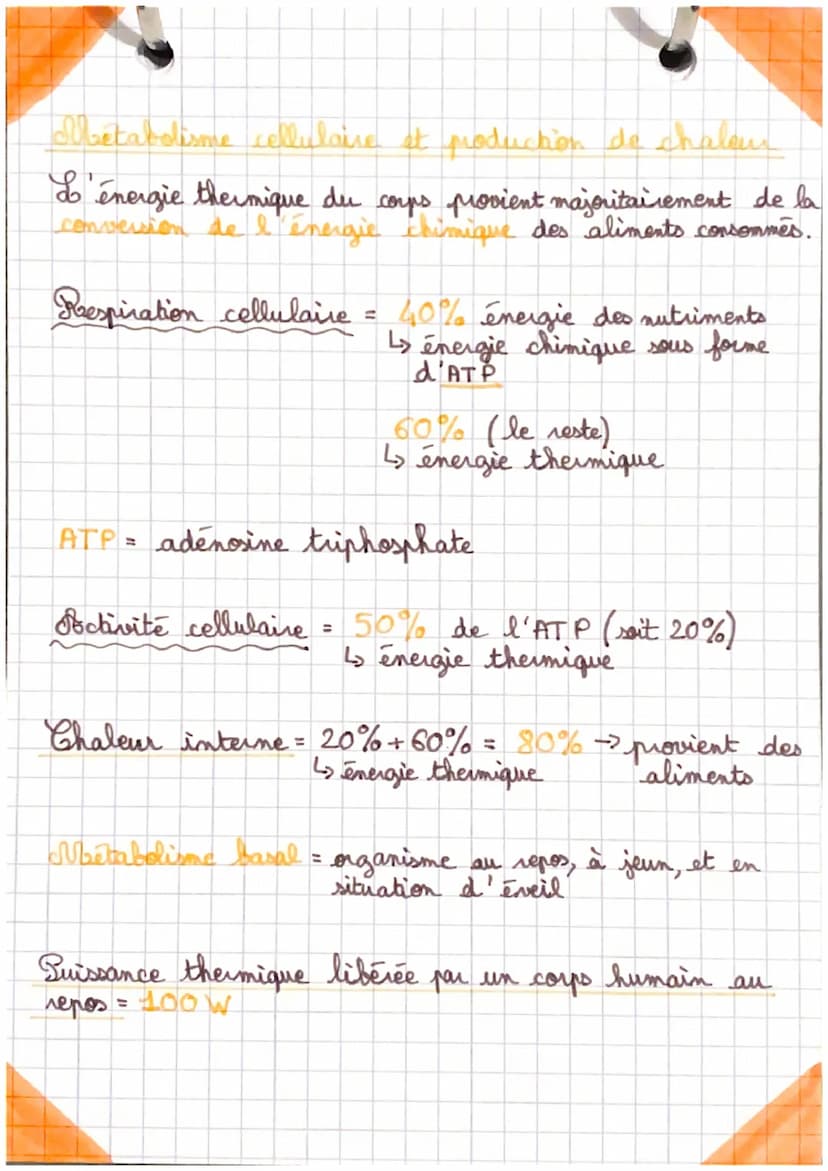 Métabolisme cellulaire et production de chaleur
L'énergie thermique du corps provient majoritairement de la
conversion de l'énergie chimique des aliments consommés.
Respiration cellulaire = 40% énergie des nutriments
↳ énergie chimique sous forme
d'ATP
60% (le reste)
↳ énergie thermique
ATP = adénosine triphosphate
Activité cellulaire = 50% de l'ATP (soit 20%)
↳ énergie thermique
Chaleur interne = 20% + 60% = 80% → provient des
↳ énergie thermique aliments
Métabolisme basal = organisme au repos, à jeun, et en
situation d'éveil
Puissance thermique libérée par un corps humain au
repos = 100 W